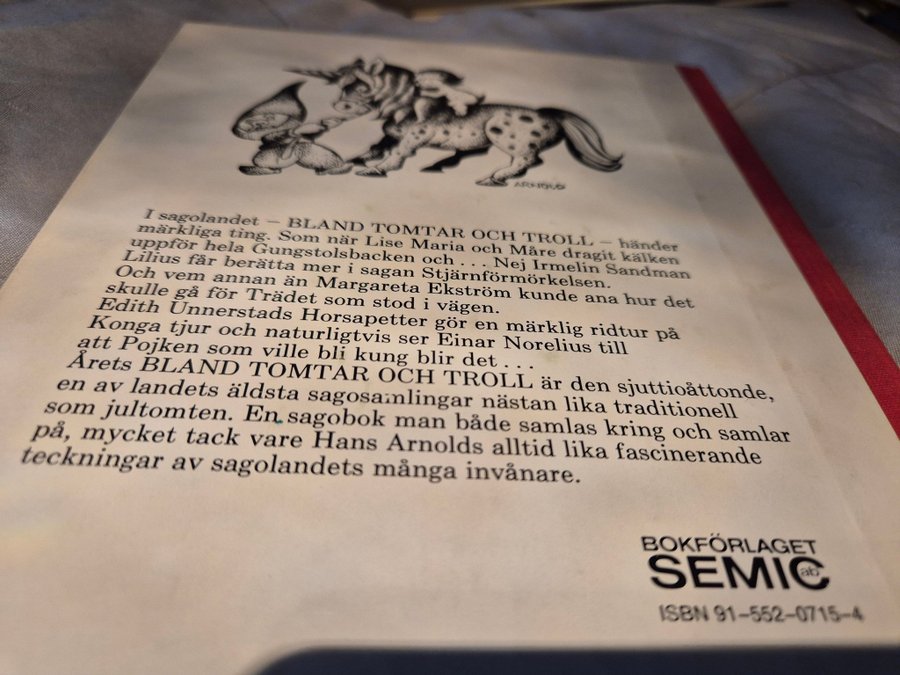 ARNOLD
I sagolandet – BLAND TOMTAR OCH TROLL – händer
märkliga ting. Som när Lise Maria och Måre dragit kälken
uppför hela Gungstolsbacken och . . . Nej Irmelin Sandman
Lilius får berätta mer i sagan Stjärnförmörkelsen.
Och vem annan än Margareta Ekström kunde ana hur det
skulle gå för Trädet som stod i vägen.
Edith Unnerstads Horsapetter gör en märklig ridtur på
Konga tjur och naturligtvis ser Einar Norelius till
att Pojken som ville bli kung blir det . . .
Årets BLAND TOMTAR OCH TROLL är den sjuttioåttonde,
en av landets äldsta sagosamlingar nästan lika traditionell
som jultomten. En sagobok man både samlas kring och samlar
på, mycket tack vare Hans Arnolds alltid lika fascinerande
teckningar av sagolandets många invånare.
BOKFÖRLAGET
SEMIC ab
ISBN 91-552-0715-4